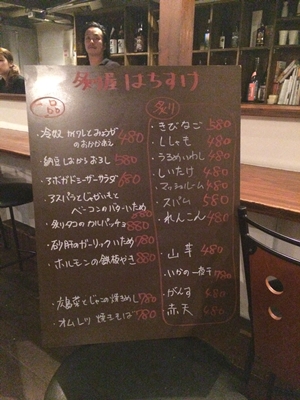 はちすけ
一品
・冷奴 ガリとみょうがの
おかかあえ 480
・納豆しおからおろし 580
・アボガドシーザーサラダ 680
・アスパラとじゃがいもと
ベーコンのバターいため
880
・炙りタコのカルパッチョ 880
・砂肝のガーリックいため 780
・ホルモンの鉄板やき 880
・広島菜とじゃこの焼きめし 780
・オムレツ焼そば 780
炙り
・きびなご 580
・ししゃも 480
・うるめいわし 480
・しいたけ 480
・マッシュルーム 480
・スパム 580
・れんこん 480
・山芋 480
・いかの一夜干 780
・がんす 480
・赤天 480